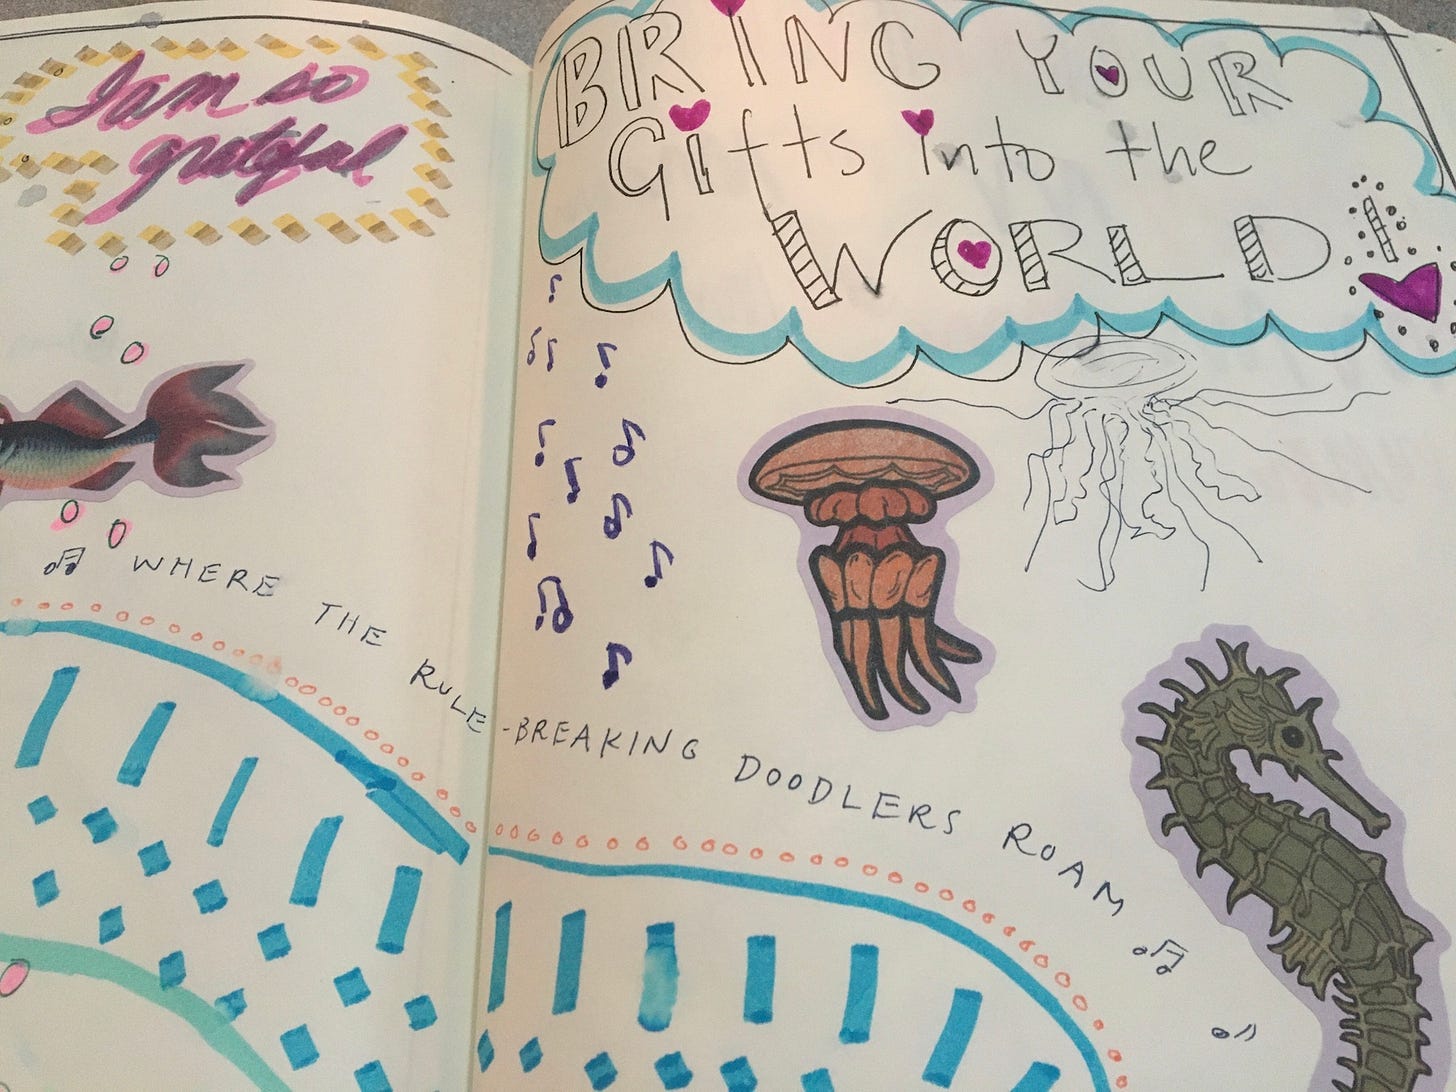 I am so
grateful
BRING YOUR
Gifts into the
WORLD!
WHERE THE RULE-BREAKING DOODLERS ROAM